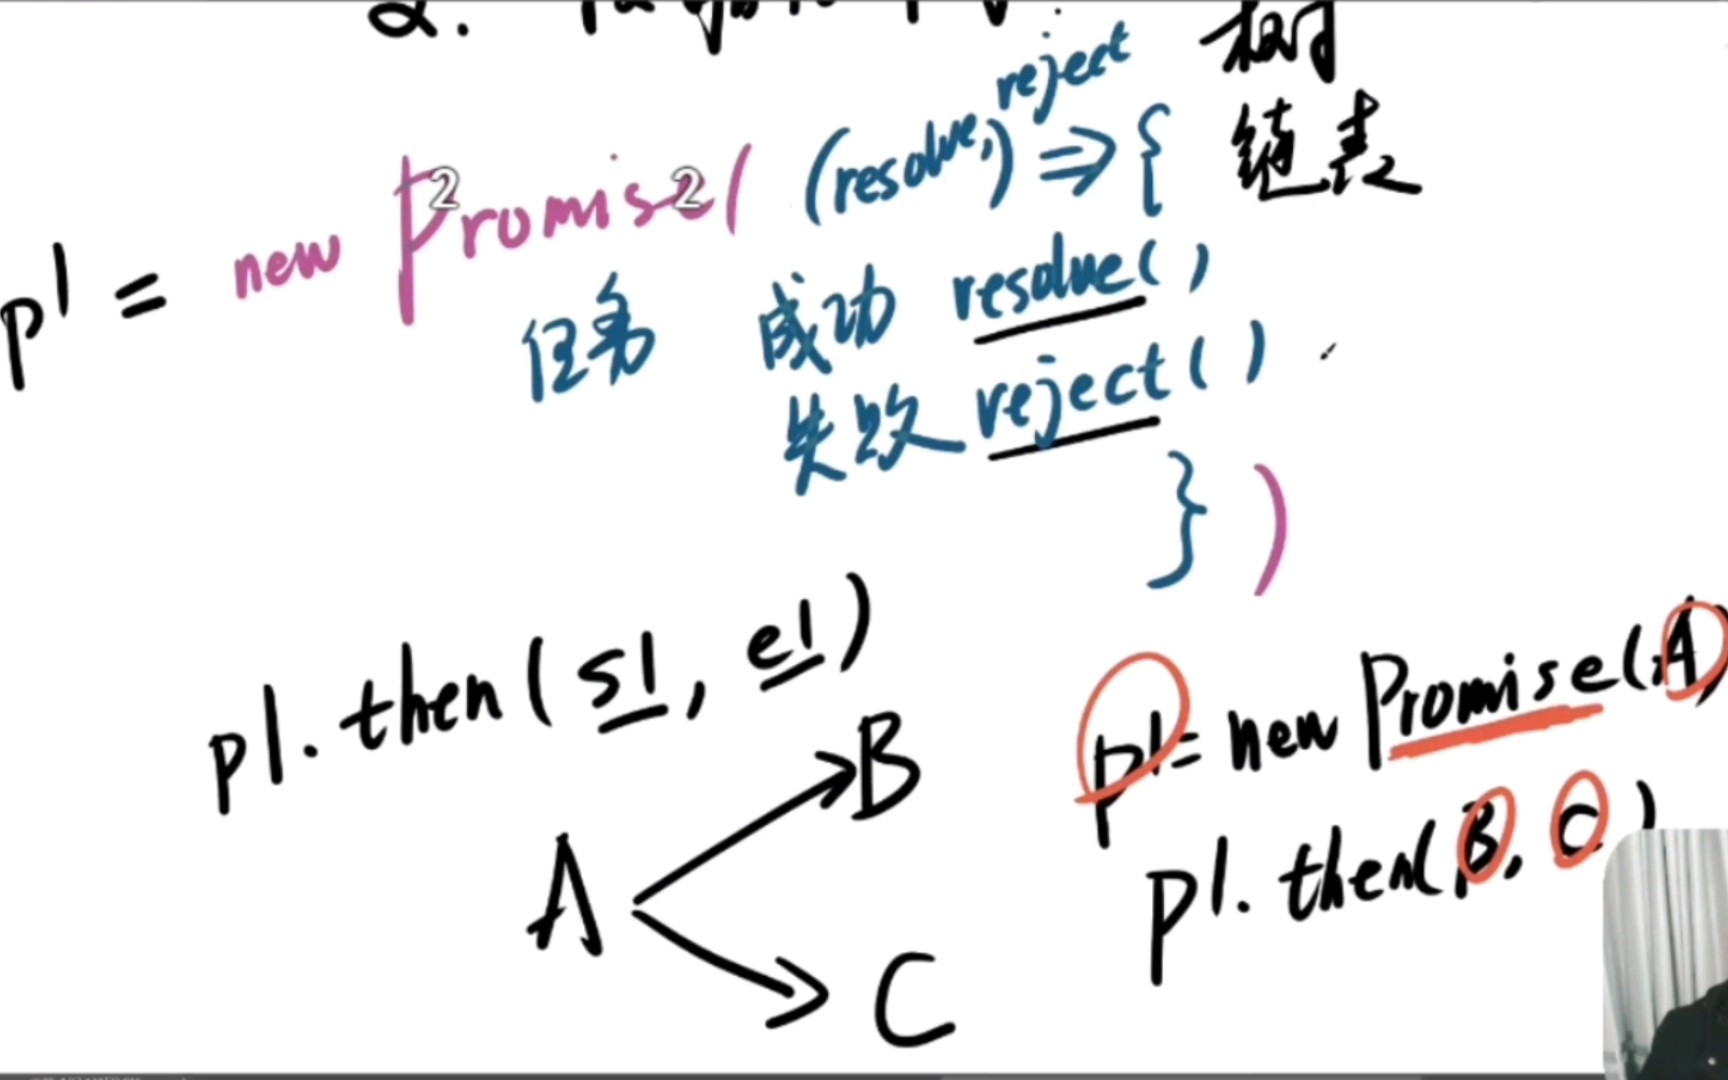 2.
树
链表
p1 = new Promise( (resolve, reject) => {
任务 成功 resolve()
失败 reject()
} )
p1.then( s1, e1 )
p1 = new Promise(A)
p1.then(B, C)
A
B
C
2
2